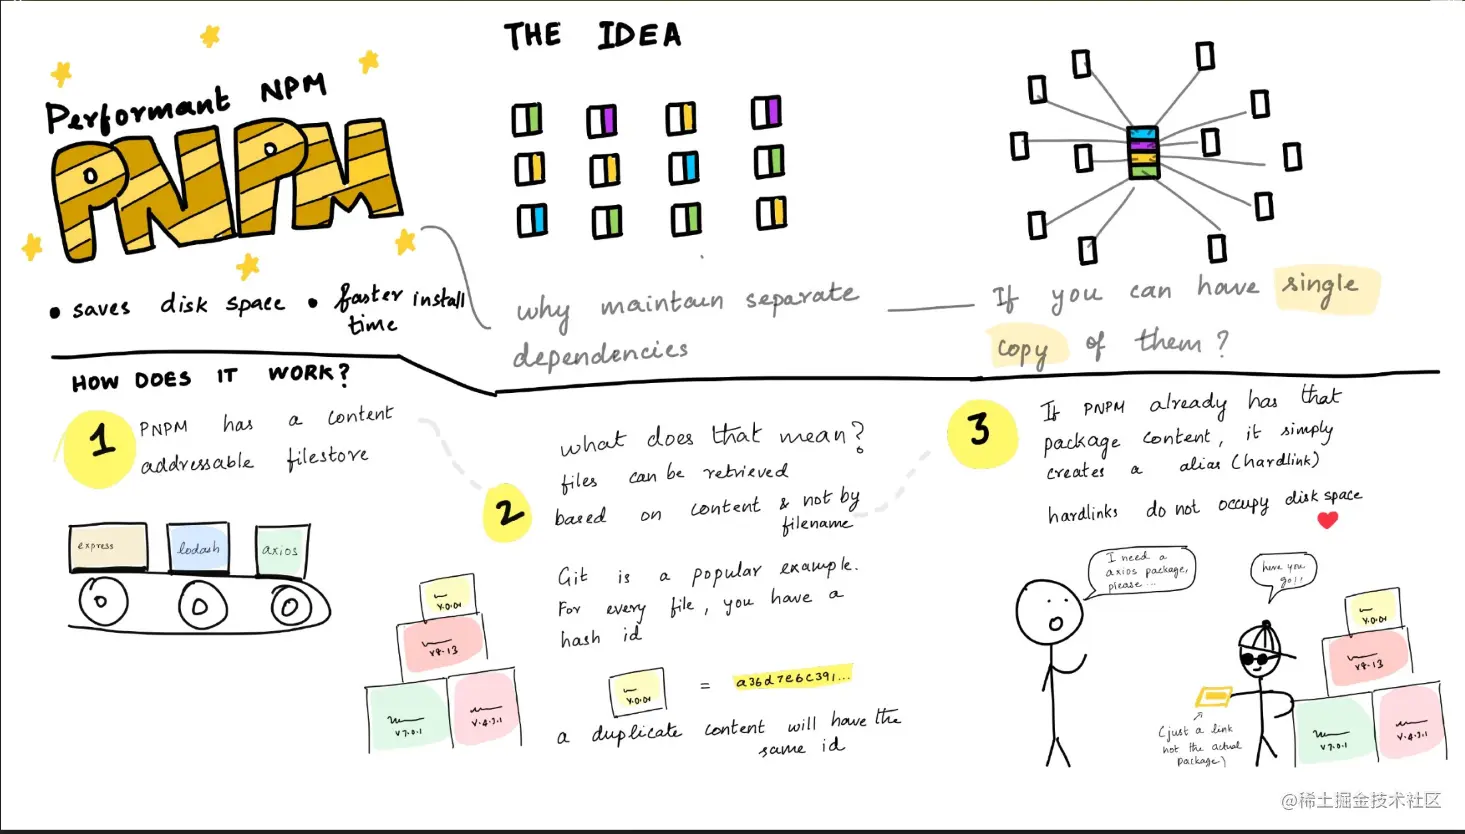 Performant NPM
PNPM
• saves disk space • faster install
time
THE IDEA
why maintain separate
dependencies
If you can have single
copy of them?
HOW DOES IT WORK?
1
PNPM has a content
addressable filestore
express
lodash
axios
2
what does that mean?
files can be retrieved
based on content & not by
filename
Git is a popular example.
For every file, you have a
hash id
V.0.01
V8.13
V7.0.1
V.4.3.1
V.0.01
=
a36d7e6c391...
a duplicate content will have the
same id
3
If PNPM already has that
package content, it simply
creates a alias (hardlink)
hardlinks do not occupy disk space
I need a
axios package,
please...
here you
go!!
(just a link
not the actual
package)
V.0.01
V8.13
V7.0.1
V.4.3.1
@稀土掘金技术社区